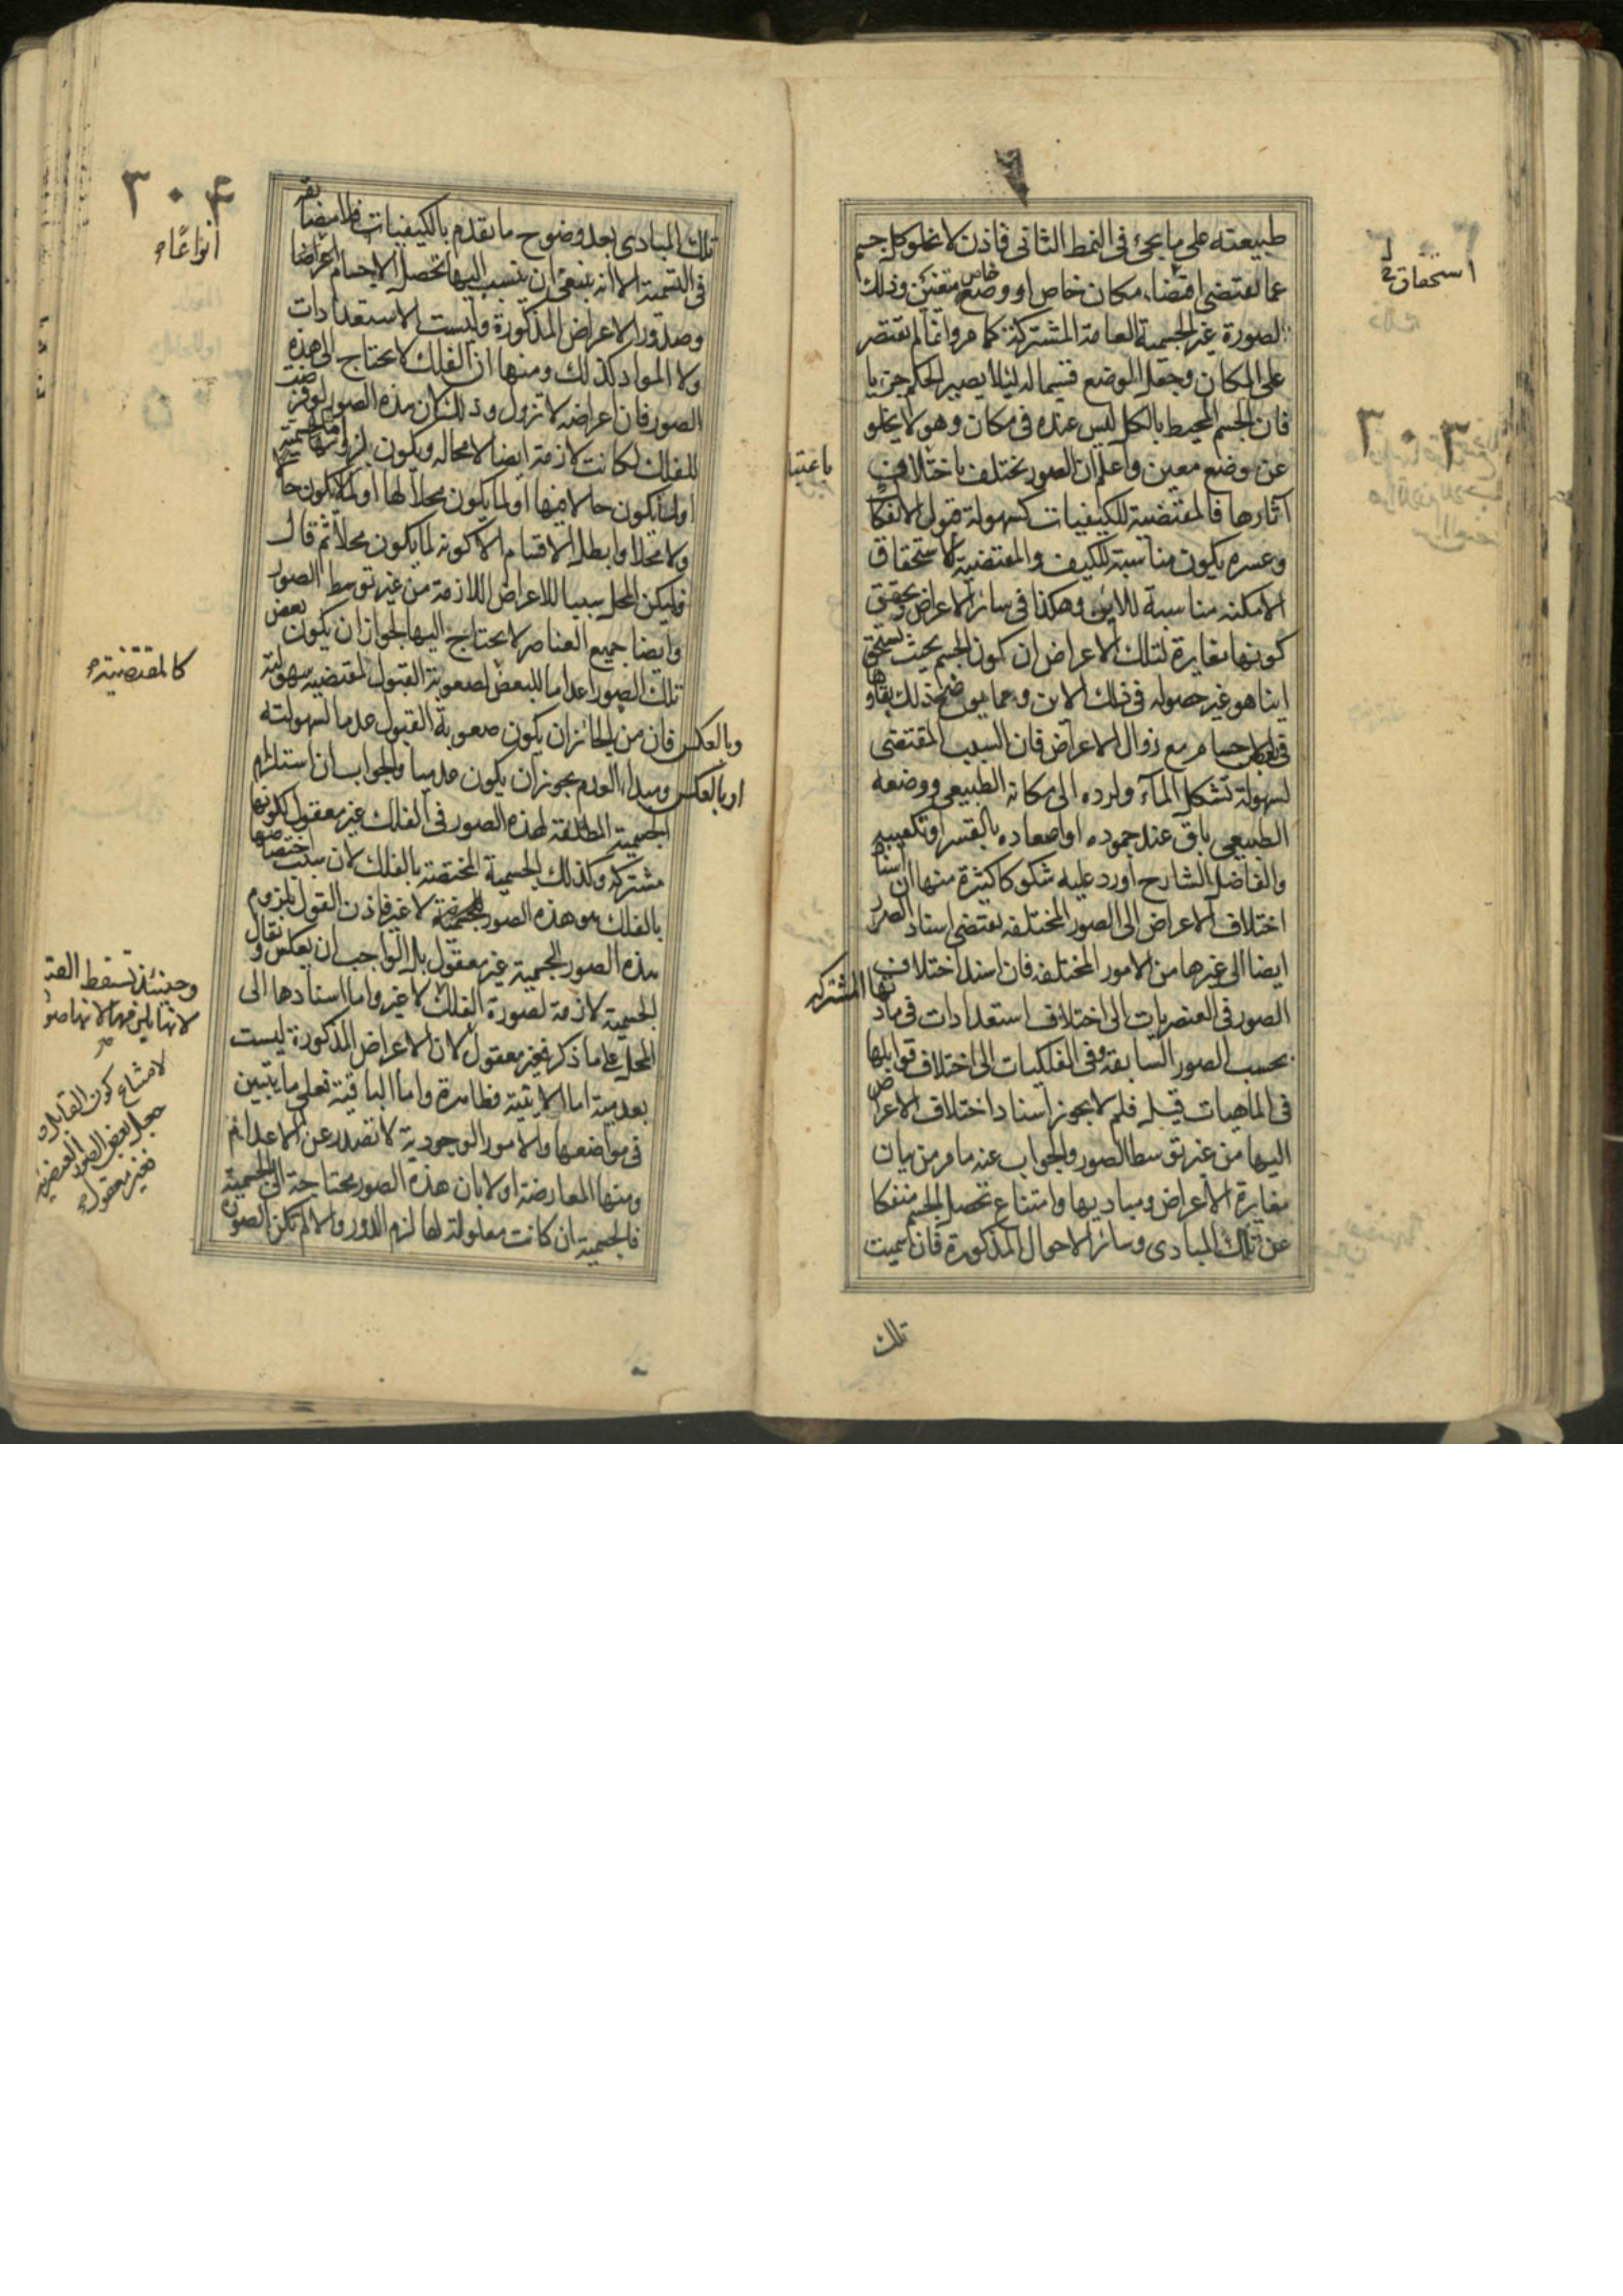 طبيعته على ما يجئ فى النمط الثانى فاذن لا يخلو كل جسم
عما يقتضى اقتضاء مكان خاص او وضع خاص متعين وذلك
الصورة غير الجسمية العامة المشتركة كما مر وانما لم يقتصر
على المكان وجعل الموضع قسيما له لئلا يصير الحكم جزئيا
فان الجسم المحيط بالكل ليس عنده فى مكان وهو لا يخلو
عن وضع معين واعلم ان الصور تختلف باختلاف
آثارها فالمقتضية للكيفيات كسهولة قبول الانفكاك
وعسره يكون مناسبة للكيف والمقتضية لاستحقاق
الامكنه مناسبة للاين وهكذا فى سائر الاعراض وتحقق
كونها مغايرة لتلك الاعراض ان كون الجسم بحيث يستحق
اينا هو غير حصوله فى ذلك الاين ومما يوضح ذلك بقاؤها
فى الاجسام مع زوال الاعراض فان السبب المقتضى
لسهولة تشكل المآء ولرده الى مكانه الطبيعى ووضعه
الطبيعى باق عند جموده او اصعاده بالقسر او تكعيبه
والفاضل الشارح اورد عليه شكوكا كثيرة منها ان اسناد
اختلاف الاعراض الى الصور المختلفه يقتضى اسناد الصور
ايضا الى غيرها من الامور المختلفه فان اسند اختلاف
الصور فى العنصريات الى اختلاف استعدادات فى مادتها المشتركه
بحسب الصور السابقه وفى الفلكيات الى اختلاف قوابلها
فى الماهيات قيل فلم لا يجوز اسناد اختلاف الاعراض
اليها من غير توسط الصور والجواب عنه ما مر من بيان
مغايرة الاعراض ومباديها وامتناع تحصل الجسم منفكا
عن تلك المبادى وسائر الاحوال المذكورة فان سميت
تلك
استحقاق
باعتبار
٣٠٤
تلك المبادى بعد وضوح ما تقدم بالكيفيات فلا مضايقه
فى التسمية الا انه ينبغى ان ينسب اليها تحصل الاجسام اعراضا
وصدور الاعراض المذكورة وليست الاستعدادات
ولا المواد كذلك ومنها ان الفلك لا يحتاج الى هذه
الصور فان اعراضه لا تزول وذلك لان هذه الصور لو فرضت
للفلك لكانت لازمة ايضا لا محاله ويكون لزومها للجسمية
او لما يكون حالا فيها او لما يكون محلا لها او لما لا يكون حالا
ولا محلا وابطل الاقسام الا كونه لما يكون محلا ثم قال
فليكن المحل سببا للاعراض اللازمة من غير توسط الصور
وايضا جميع العناصر لا يحتاج اليها لجواز ان يكون بعض
تلك الصور اعداما للبعض لصعوبة القبول لمقتضيه سهولته
وبالعكس فان من الجائز ان يكون صعوبة القبول عدما لسهولته
او بالعكس ومبداء العدم يجوز ان يكون عدميا والجواب ان استلزام
الجسمية المطلقة لهذه الصور فى الفلك غير معقول لكونها
مشتركه وكذلك الجسمية المختصة بالفلك لان سبب اختصاصها
بالفلك هو هذه الصور لا غير فاذن القول بلزوم
هذه الصور للجسمية غير معقول بل الواجب ان يعكس ويقال
الجسمية لازمة لصورة الفلك لا غير واما اسنادها الى
المحل على ما ذكر فغير معقول لان الاعراض المذكورة ليست
بعدمية اما الاينية فظاهرة واما الباقية فعلى ما يتبين
فى مواضعها والامور الوجودية لا تصدر عن الاعدام
ومنها المعارضة اولا بان هذه الصور محتاجة الى الجسمية
فالجسمية ان كانت معلولة لها لزم الدور والا لم تكن الصورة
انواعا
كالمقتضية
وحينئذ تسقط القسمة
لامتناع كون القابل
جعل بعض الصور العنصرية
فغير معقول